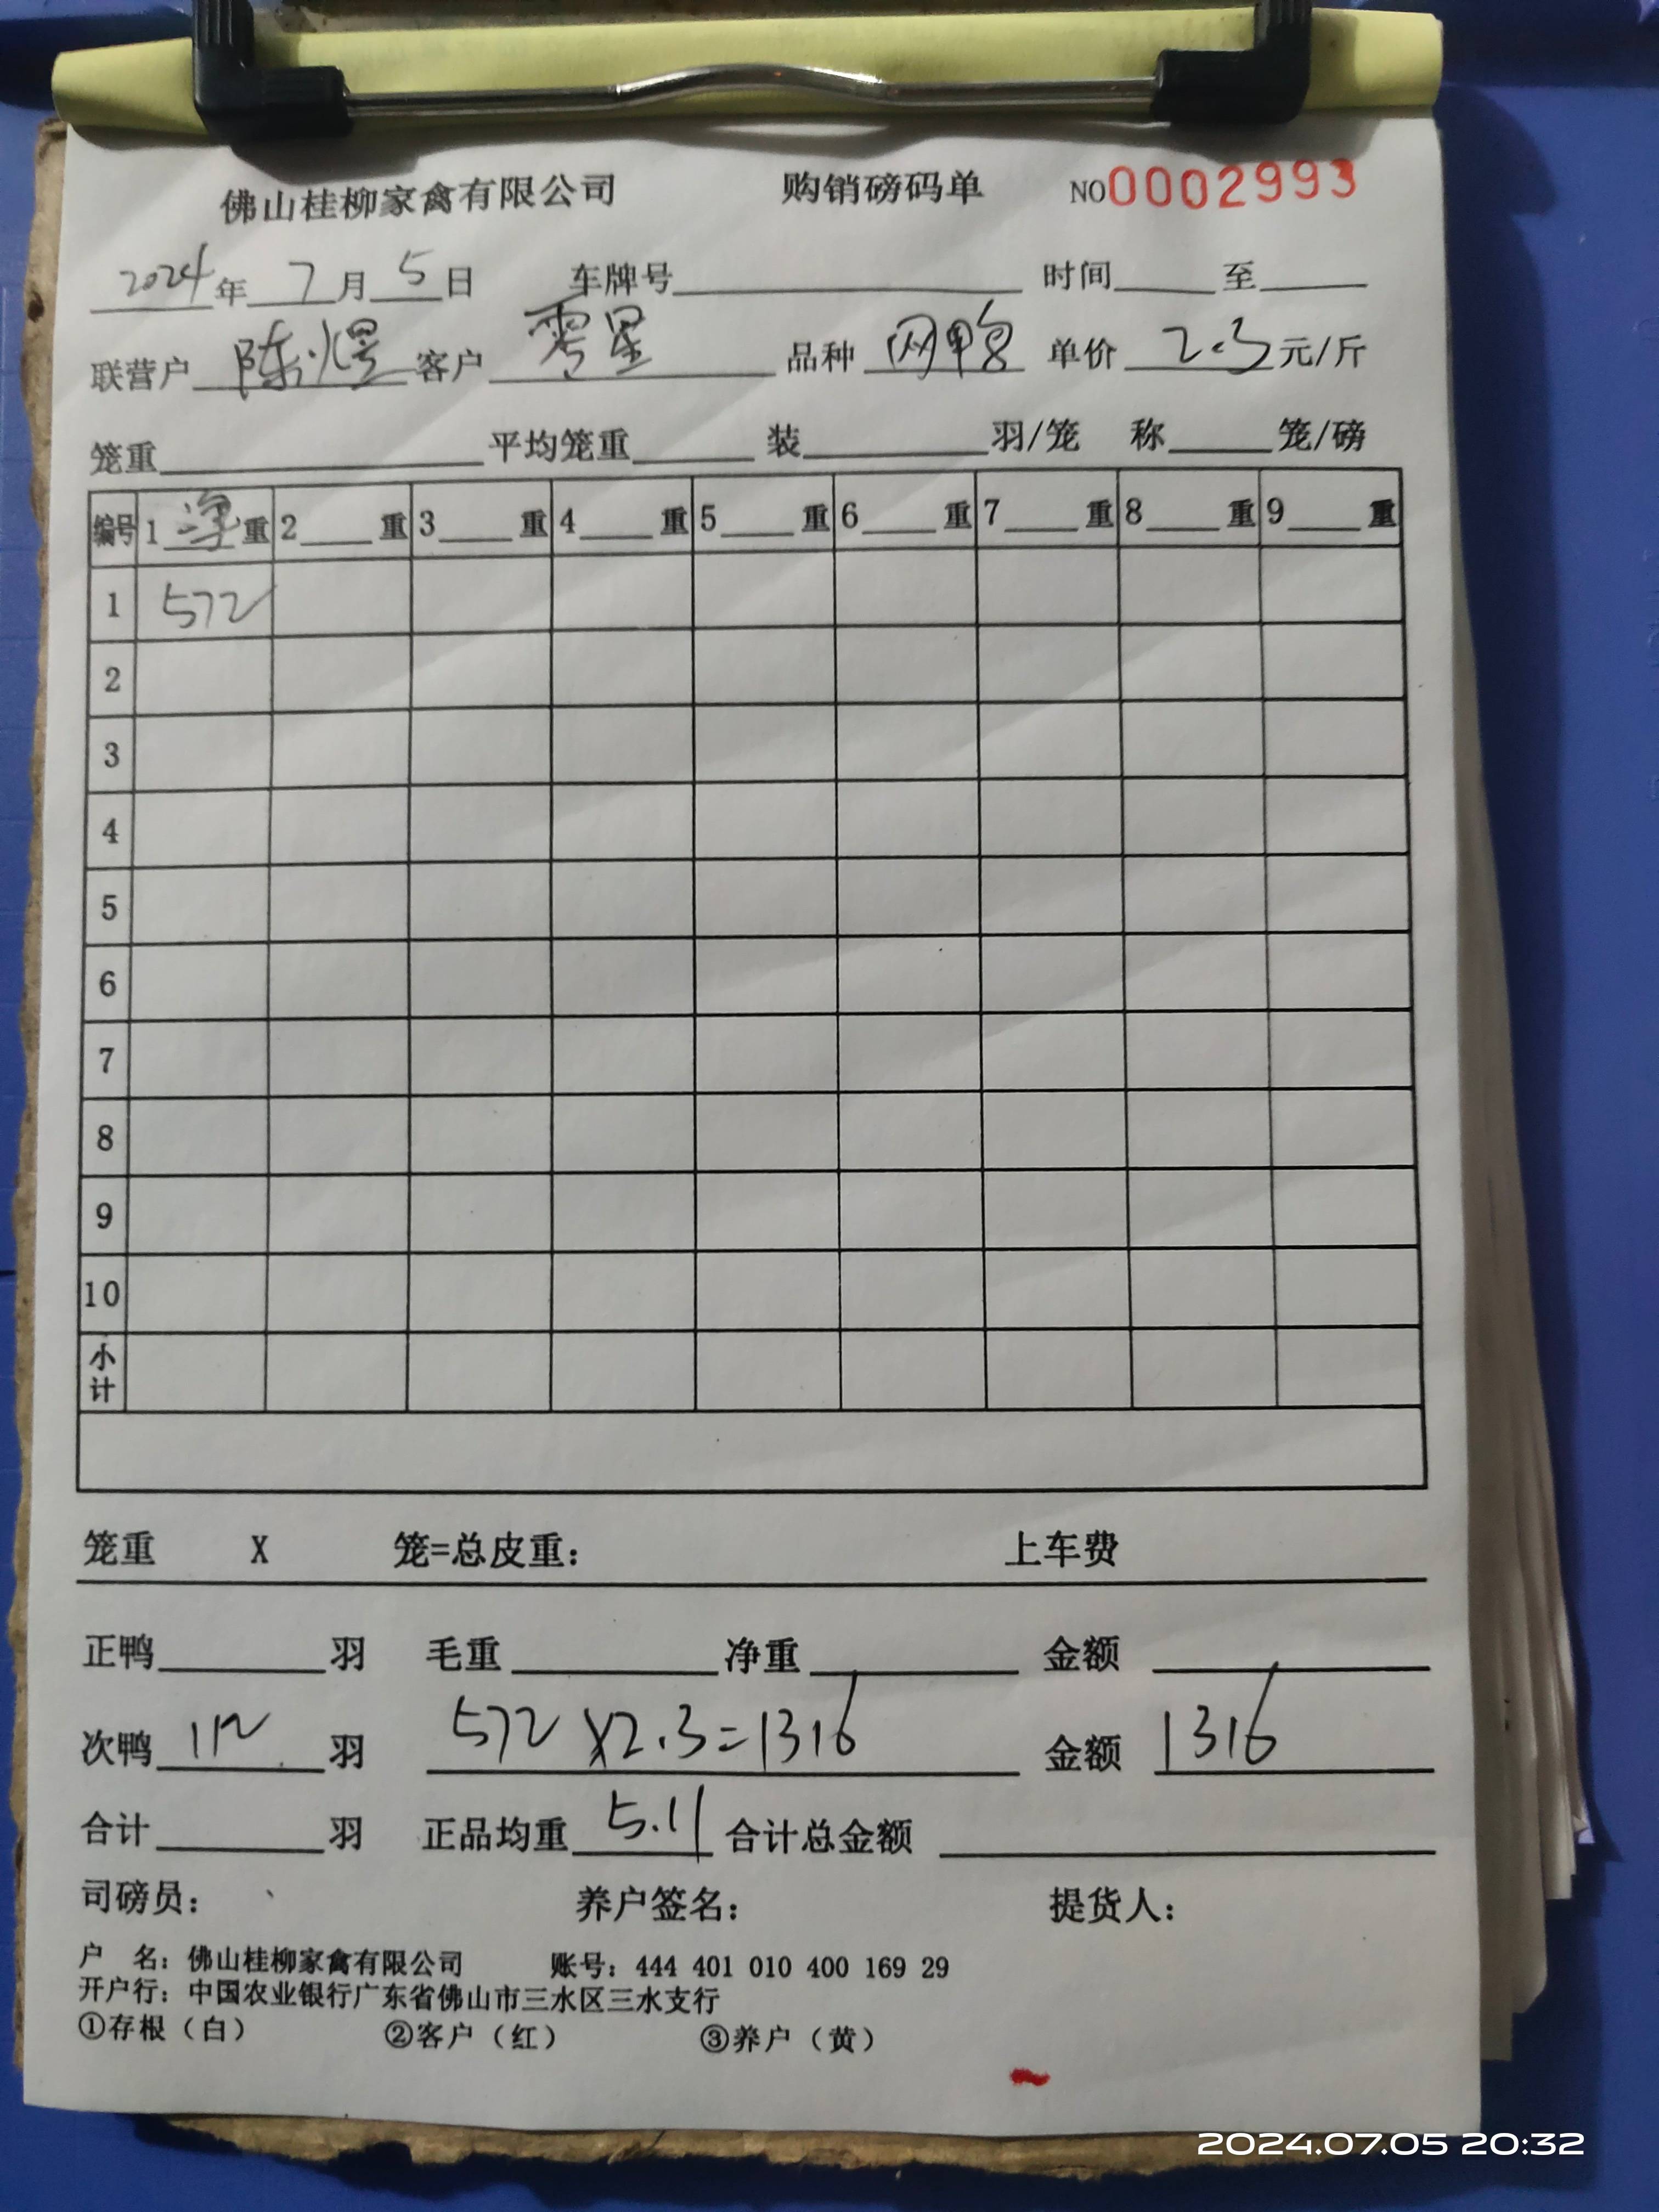 佛山桂柳家禽有限公司 购销磅码单 NO0002993
2024年7月5日 车牌号 时间 至
联营户 陈煜 客户 零星 品种 肉鸭 单价 2.3元/斤
笼重 平均笼重 装 羽/笼 称 笼/磅
编号 1净重 2 重 3 重 4 重 5 重 6 重 7 重 8 重 9 重
1 572
2
3
4
5
6
7
8
9
10
小计
笼重 X 笼=总皮重: 上车费
正鸭 羽 毛重 净重 金额
次鸭 112 羽 572×2.3=1316 金额 1316
合计 羽 正品均重 5.11 合计总金额
司磅员: 养户签名: 提货人:
户 名: 佛山桂柳家禽有限公司 账号: 444 401 010 400 169 29
开户行: 中国农业银行广东省佛山市三水区三水支行
①存根(白) ②客户(红) ③养户(黄)
2024.07.05 20:32